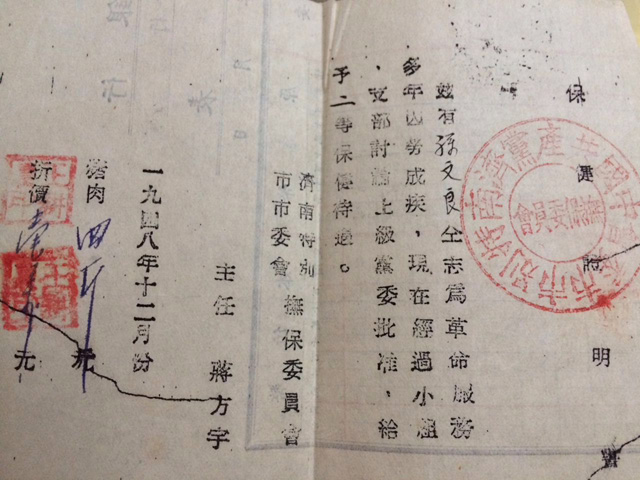 保健證明書
茲有孫文良仝志爲革命服務
多年因勞成疾，現在經過小組
、支部討論上級黨委批准，給
予二等保健待遇。
濟南特別市市委會 撫保委員會
主任 蔣方宇
一九四八年十二月份
猪肉四斤
折價 元
中國共產黨濟南特別市